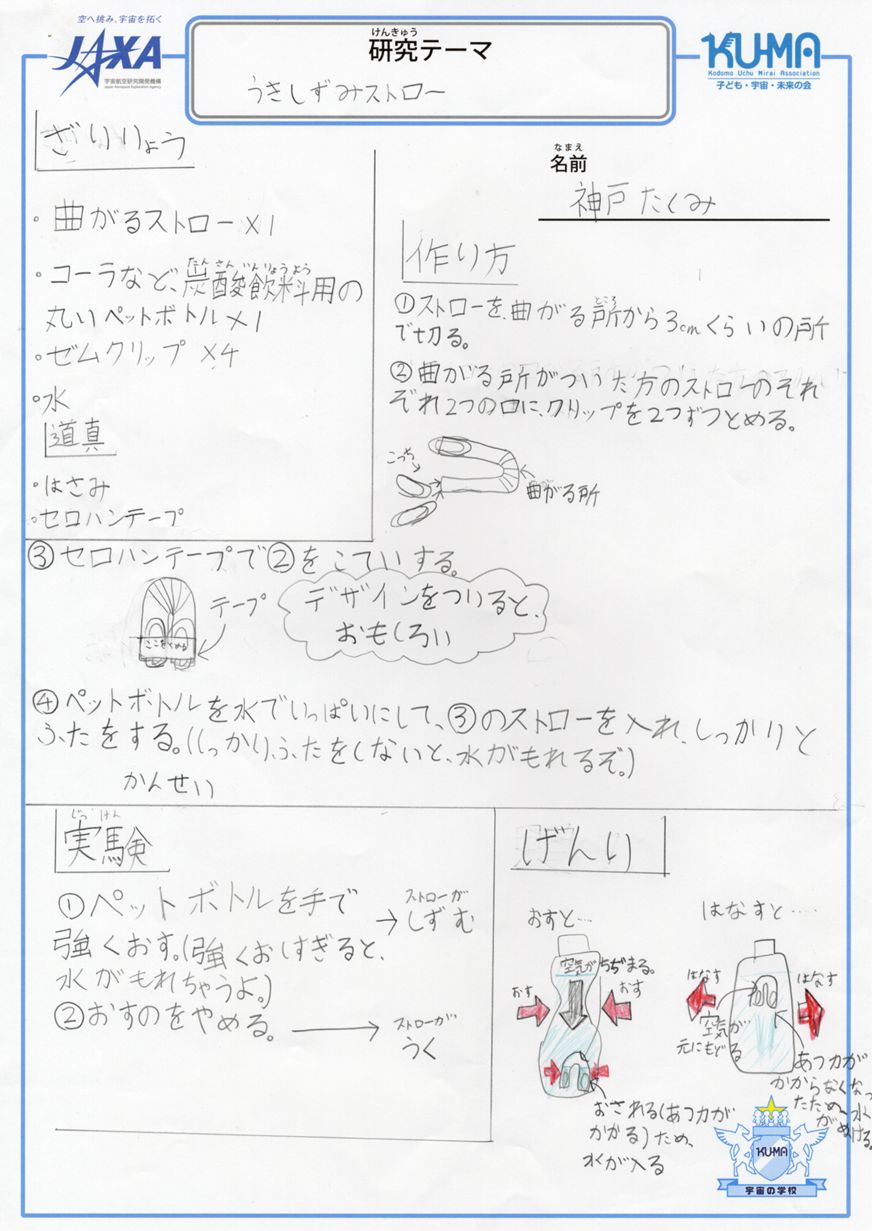 空へ挑み、宇宙を拓く
JAXA
宇宙航空研究開発機構
Japan Aerospace Exploration Agency
けんきゅう
研究テーマ
うきしずみストロー
KU-MA
Kodomo Uchu Mirai Association
子ども・宇宙・未来の会
なまえ
名前
神戸 たくみ
ざいりょう
・曲がるストロー×1
・コーラなど、炭酸飲料用の
たん さん いんりょうよう
丸いペットボトル×1
・ゼムクリップ ×4
・水
道真
・はさみ
・セロハンテープ
作り方
①ストローを、曲がる所から3cmくらいの所
ところ
で切る。
②曲がる所がついた方のストローのそれ
ぞれ2つの口に、クリップを2つずつとめる。
こっち
曲がる所
③セロハンテープで②をこていする。
テープ
ここをとめる
デザインをついると、
おもしろい
④ペットボトルを水でいっぱいにして、③のストローを入れ、しっかりと
ふたをする。(しっかりふたをしないと、水がもれるぞ。)
かんせい
じっ けん
実験
①ペットボトルを手で
強くおす。(強くおしすぎると、
水がもれちゃうよ。)
→ストローが
しずむ
②おすのをやめる。
→ストローが
うく
げんり
おすと…
空気がちぢまる。
おす
おす
おされる(あつ力が
かかる)ため、
水が入る
はなすと……
はなす
はなす
空気が
元にもどる
あつ力が
かからなくなっ
たため、水
がぬける。
KU-MA
宇宙の学校